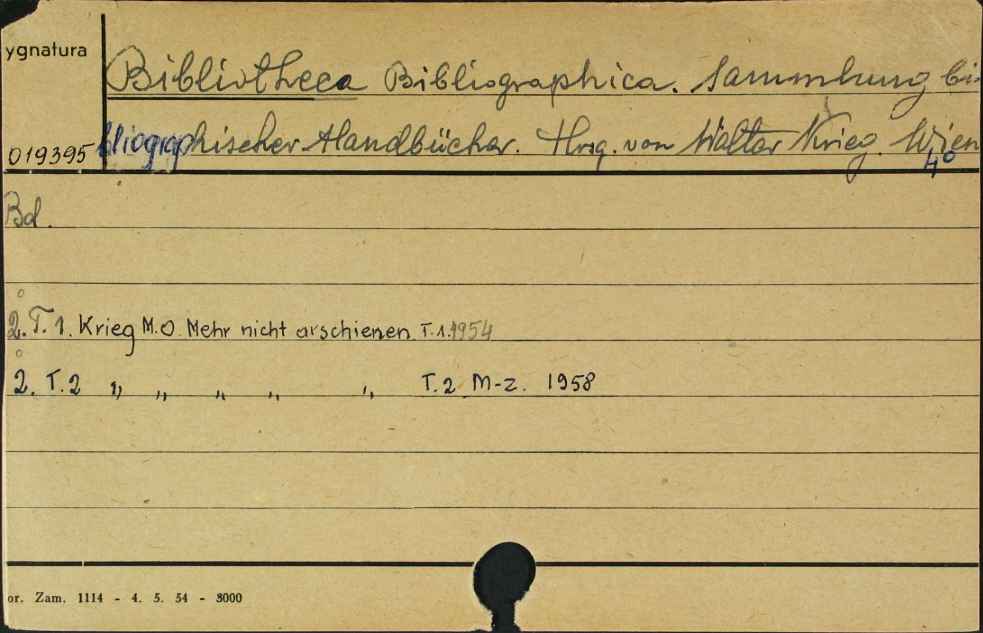 ygnatura
Bibliotheca Bibliographica. Sammlung bi-
019395 bliographischer Handbücher. Hrsg. von Walter Krieg. Wien
4°
Bd.
2. T. 1. Krieg M.O. Mehr nicht erschienen. T.1. 1954
2. T. 2 " " " " " T. 2 M-Z. 1958
or. Zam. 1114 - 4. 5. 54 - 3000